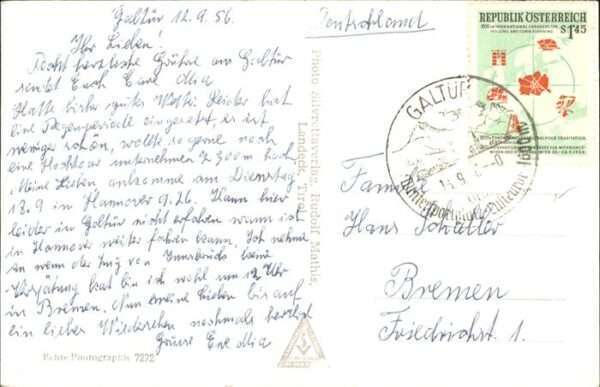 Galtür 12.9.56.
Ihr Lieben!
Recht herzliche Grüße aus Galtür
sendet Euch Eure Mia
Hatte bisher gutes Wetter leider hat
eine Regenperiode eingesetzt, es ist
weniger schön, wollte so gerne noch
eine Hochtour unternehmen 2300m hoch
Meine Lieben, ankomme am Dienstag
18.9 in Hannover 9.26. Kann hier
leider in Galtür nicht erfahren wann ich
in Hannover weiter fahren kann. Ich nehme
an wenn der Zug von Innsbruck keine
Verspätung hat bin ich wohl um 12 Uhr
in Bremen. Nun meine Lieben bis auf
ein liebes Wiedersehen nochmals herzl.
Grüsse Eure Mia
Echte Photographie 7272
Photo-Kunstverlag Rudolf Mathis,
Landeck, Tirol
Deutschland
REPUBLIK ÖSTERREICH
S 1.45
GALTÜR
Familie
Hans
Bremen
Friedrichstr. 1.